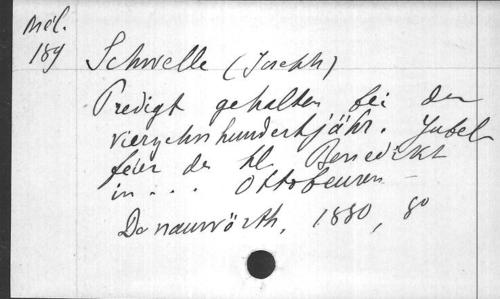 Mél.
189
Schwelle (Joseph)
Predigt gehalten bei der
vierzehnhundertjähr. Jubel
feier des hl. Benedikt
in . . . Ottobeuren -
Donauwörth, 1880, 8o